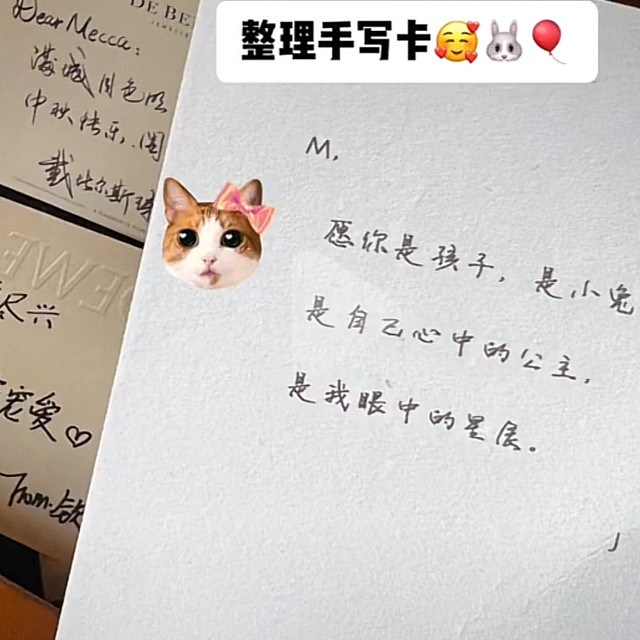 整理手写卡🥰🐰🎈
DE BE
Dear Mecca:
满城月色
中秋快乐,阖
戴比尔斯
M,
愿你是孩子,是小兔
是自己心中的公主,
是我眼中的星辰。
J
尽兴
宠爱♡
From.